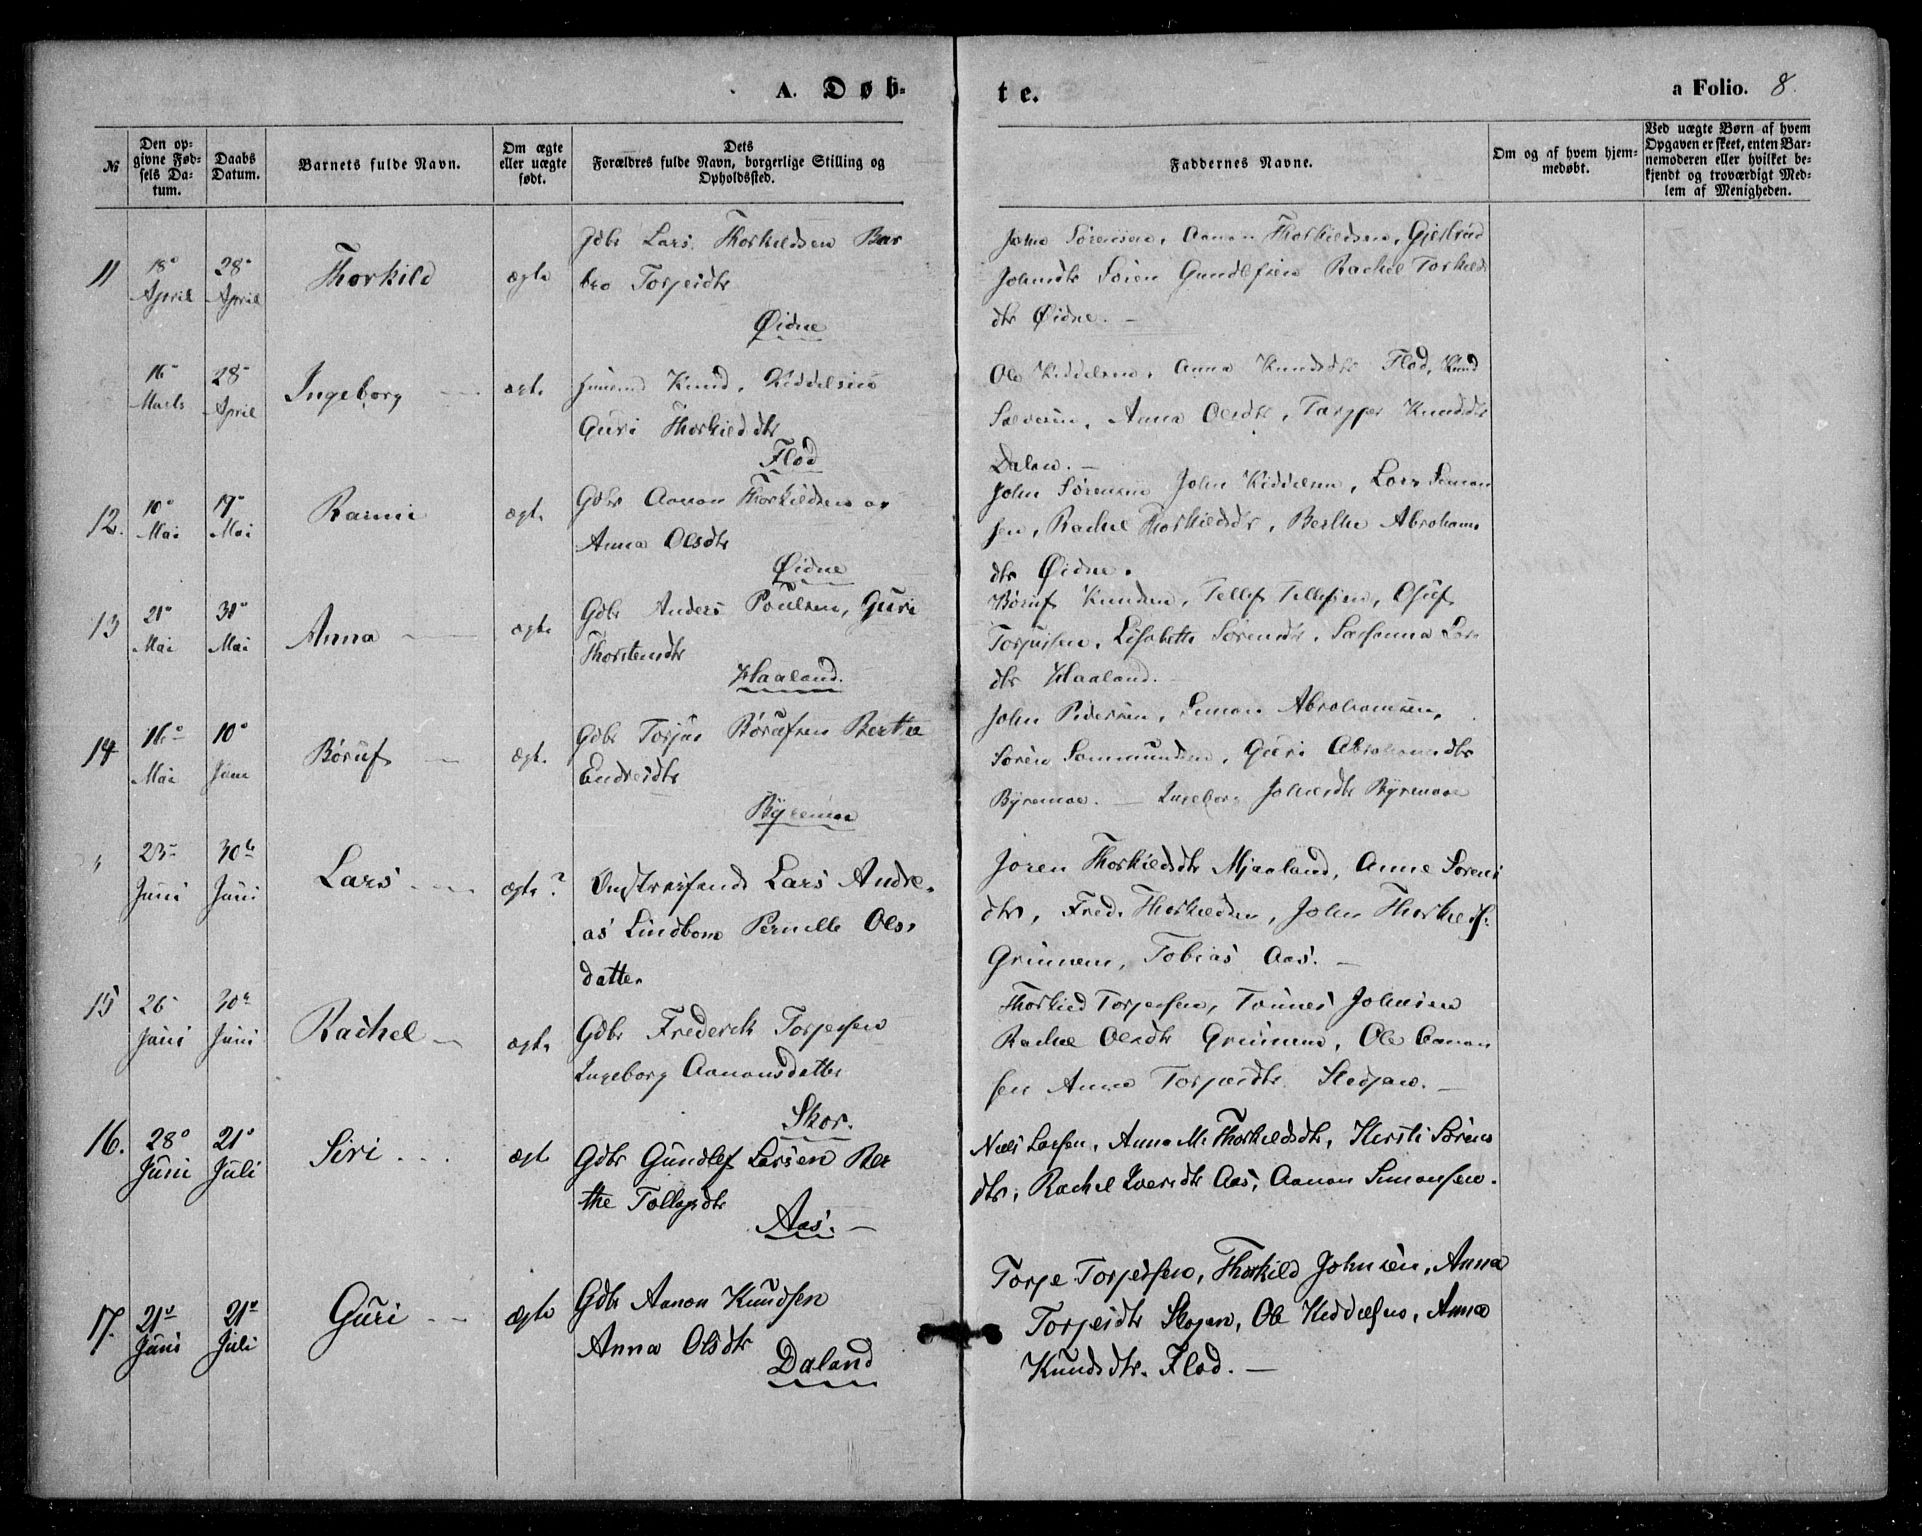 A. Døb-
te.
a Folio. 8.
№
Den op-
givne Fød-
sels Da-
tum.
Daabs
Datum.
Barnets fulde Navn.
Om ægte
eller uægte
født.
Dets
Forældres fulde Navn, borgerlige Stilling og
Opholdssted.
Faddernes Navne.
Om og af hvem hjem-
medøbt.
Ved uægte Børn af hvem
Opgaven er skeet, enten Bar-
nemoderen eller hvilket be-
kjendt og troværdigt Med-
lem af Menigheden.
11
18
April
28
April
Thorkild
ægte
Gdbr Lars Thorkildsen Bar
bro Torjeidtr
Øidne
John Sørensen, Aanon Thorkildsen,
Johnsdtr Søren Gundlefsen Rachel Torkilds
dtr Øidne. —
16
Marts
28
April
Ingeborg
ægte
Knud Kiddelsen
Guri Thorkilddtr
Flod
Ole Kiddelsen, Anna Knudsdtr Flod, Knud
Anna Olsdtr, Knudsdtr
Dalan. —
12.
10
Mai
19
Mai
ægte
Gdbr Aanon Thorkildsen og
Anna Olsdtr
Øidne
John Sørensen John Kiddelsen, Lars Simon
sen, Rachel Thorkildsdtr, Berthe Abrahams
dtr Øidne.
13
21
Mai
31
Mai
Anna
ægte
Gdbr Anders Poulsen, Guri
Thorstensdtr
Haaland.
Børuf Knudsen, Tellef Tellefsen, Osuf
Torjussen, Lisabeth Sørensdtr, Susanna Lars
dtr Haaland. —
14
16
Mai
10
Juni
Børuf
ægte
Gdbr Torjus Børufsen Berthe
Endresdtr
Byremoe
John Pedersen, Simon Abrahamsen,
Søren Guri Abrahamsdtr
Byremoe. — Ingeborg Johnsdtr Byremoe
"
23
Juni
30te
Juni
Lars
ægte?
Omstreifende Lars Andre-
as Lindbom Pernille Ols-
datter
Joren Thorkildsdtr Mjaaland, Anne Sørens
dtr, Fred. Thorkildsen, John Thorkilds.
Grimnem, Tobias Aas. —
15
26
Juni
30te
Juni
Rachel
ægte
Gdbr Frederek Torjersen
Ingeborg Aanonsdatter
Skor.
Thorkild Torjersen, Tønnes Johnsen
Rachel Olsdtr Grimnem, Ole Aanon
sen Anna Torjersdtr —
16.
28
Juni
21
Juli
Siri
ægte
Gdbr Gundlef Larsen Ber
the Tollagsdtr
Aas. —
Niels Larsen, Anna M. Thorkildsdtr, Kersti Sørens
dtr, Rachel Iversdtr Aas, Aanon Simonsen.
17.
21
Juni
21
Juli
Guri
ægte
Gdbr Aanon Knudsen
Anna Olsdtr
Daland
Torje Torjedsen, Thorkild Johnsen, Anna
Torjeidtr Skojen, Ole Kiddelsen, Anna
Knudsdtr. Flod. —